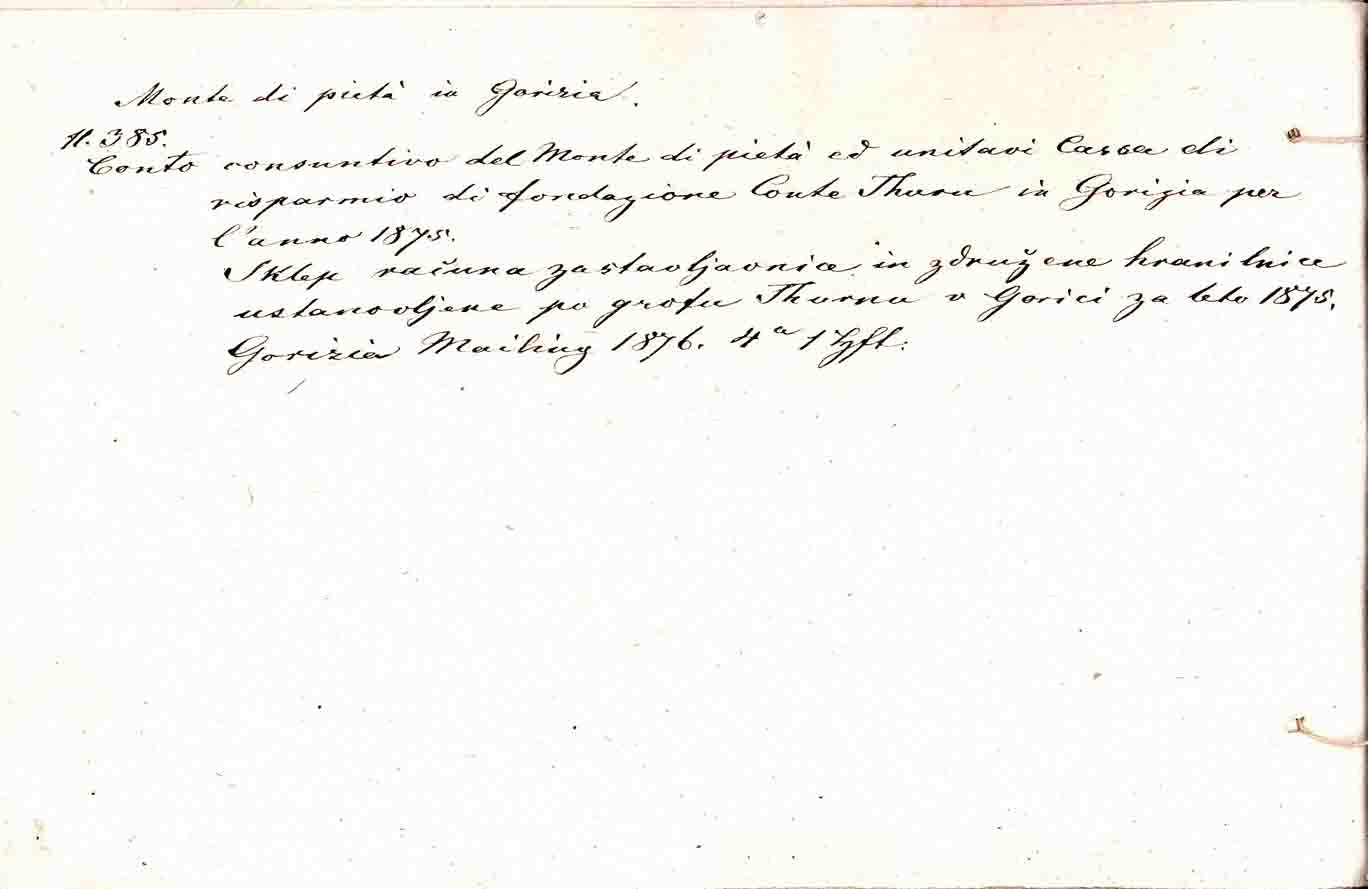 Monte di pietà in Gorizia.
11.385.
Conto consuntivo del Monte di pietà ed unitavi Cassa di
risparmio di fondazione Conte Thurn in Gorizia per
l'anno 1875.
Sklep računa zastavljavnice in združene hranilnice
ustanovljene po grofu Thurnu v Gorici za leto 1875.
Gorizia Mailing 1876. 4° 1 Hft.